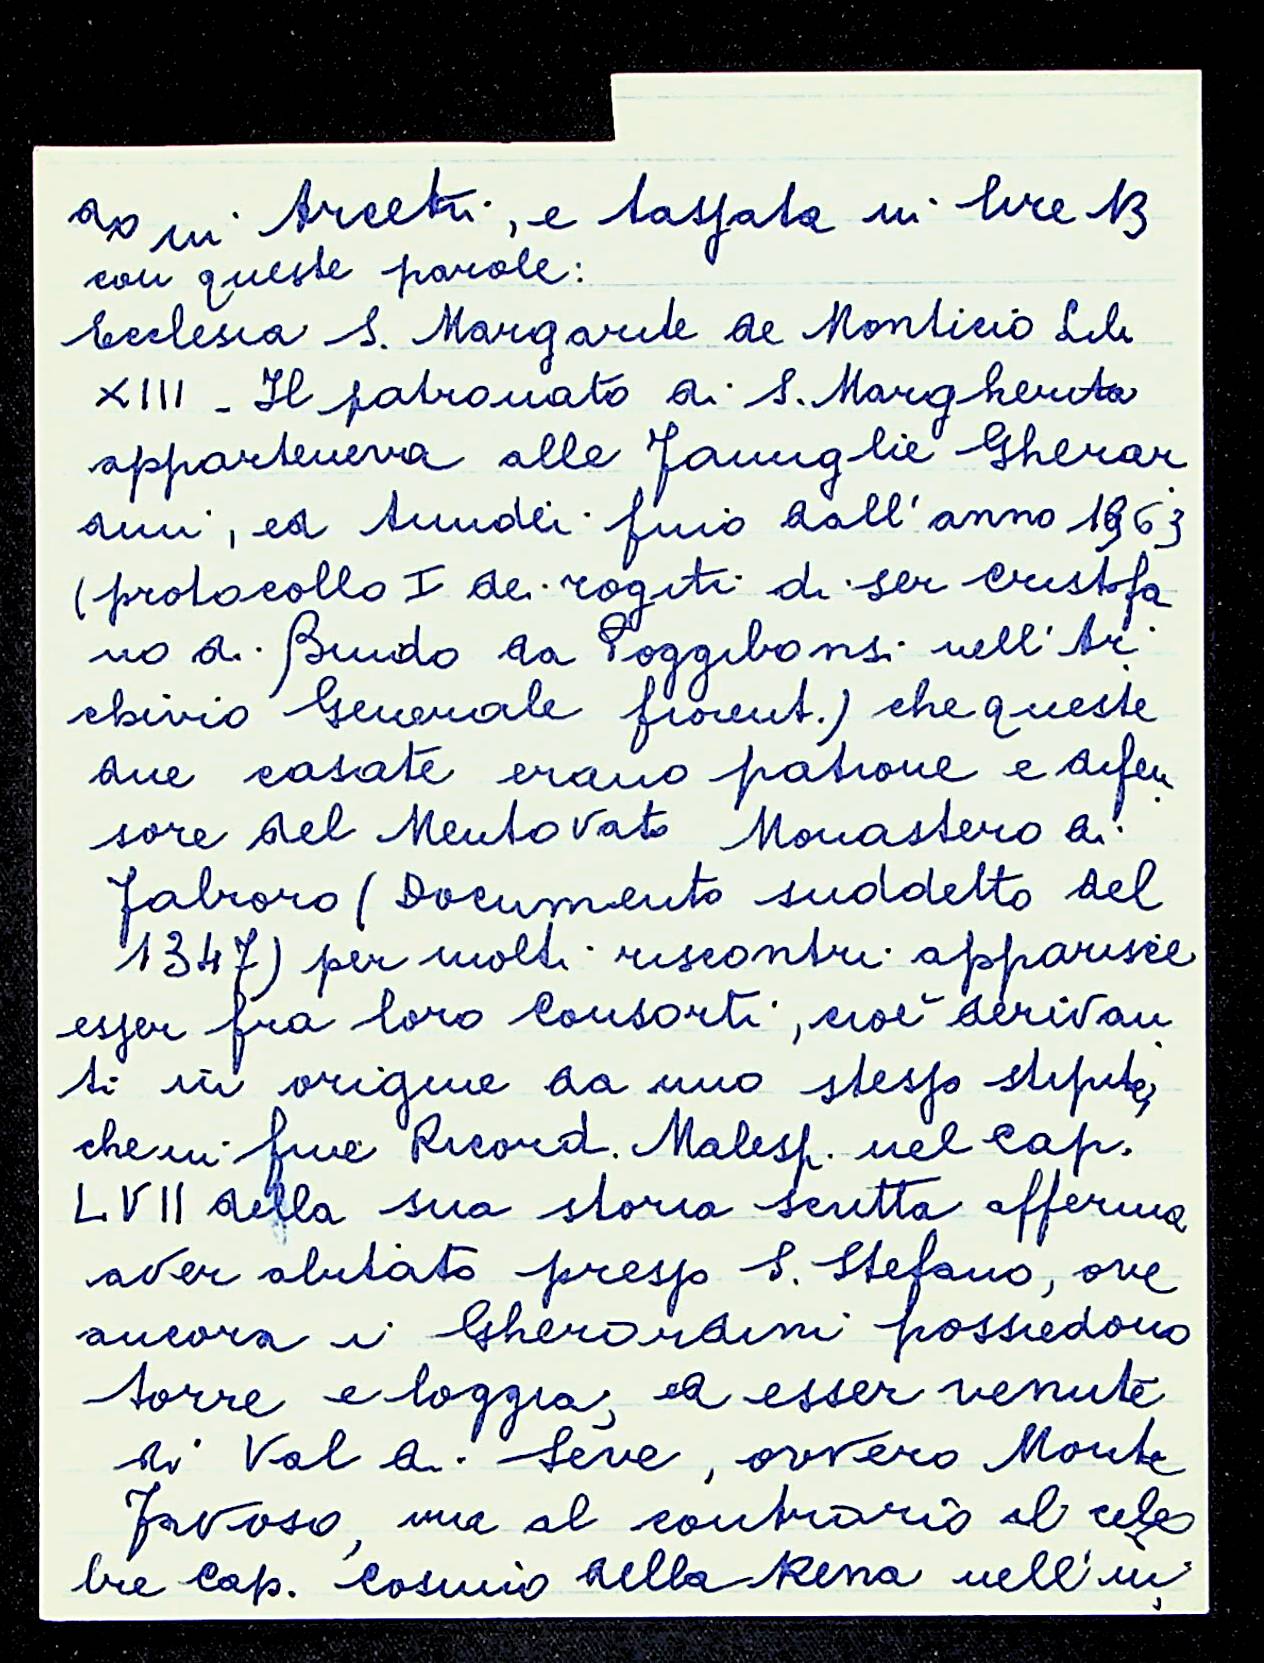 do in Arcetri, e tassata in lire 13
con queste parole:
Ecclesia S. Margarite de Monticio Lib
XIII - Il patronato di S. Margherita
apparteneva alle Famiglie Gherar
dini, ed Amidei fino dall' anno 1363
(protocollo I dei rogiti di ser Cristofa
no di Bindo da Poggibonsi nell' Ar
chivio Generale fiorent.) che queste
due casate erano patrone e difen
sore del Mentovato Monastero di
Fabroro (Documento suddetto del
1347) per molti riscontri apparisce
esser fra loro Consorti, cioè derivan
ti in origine da uno stesso stipite,
che in fine Ricord. Malesp. nel Cap.
LVII della sua storia scritta afferma
aver abitato presso S. Stefano, ove
ancora i Gherardini possiedono
torre e loggia, ed esser venute
di Val di Seve, ovvero Monte
Favoso, ma al contrario il cele
bre Cap. Cosimo della Rena nell' in